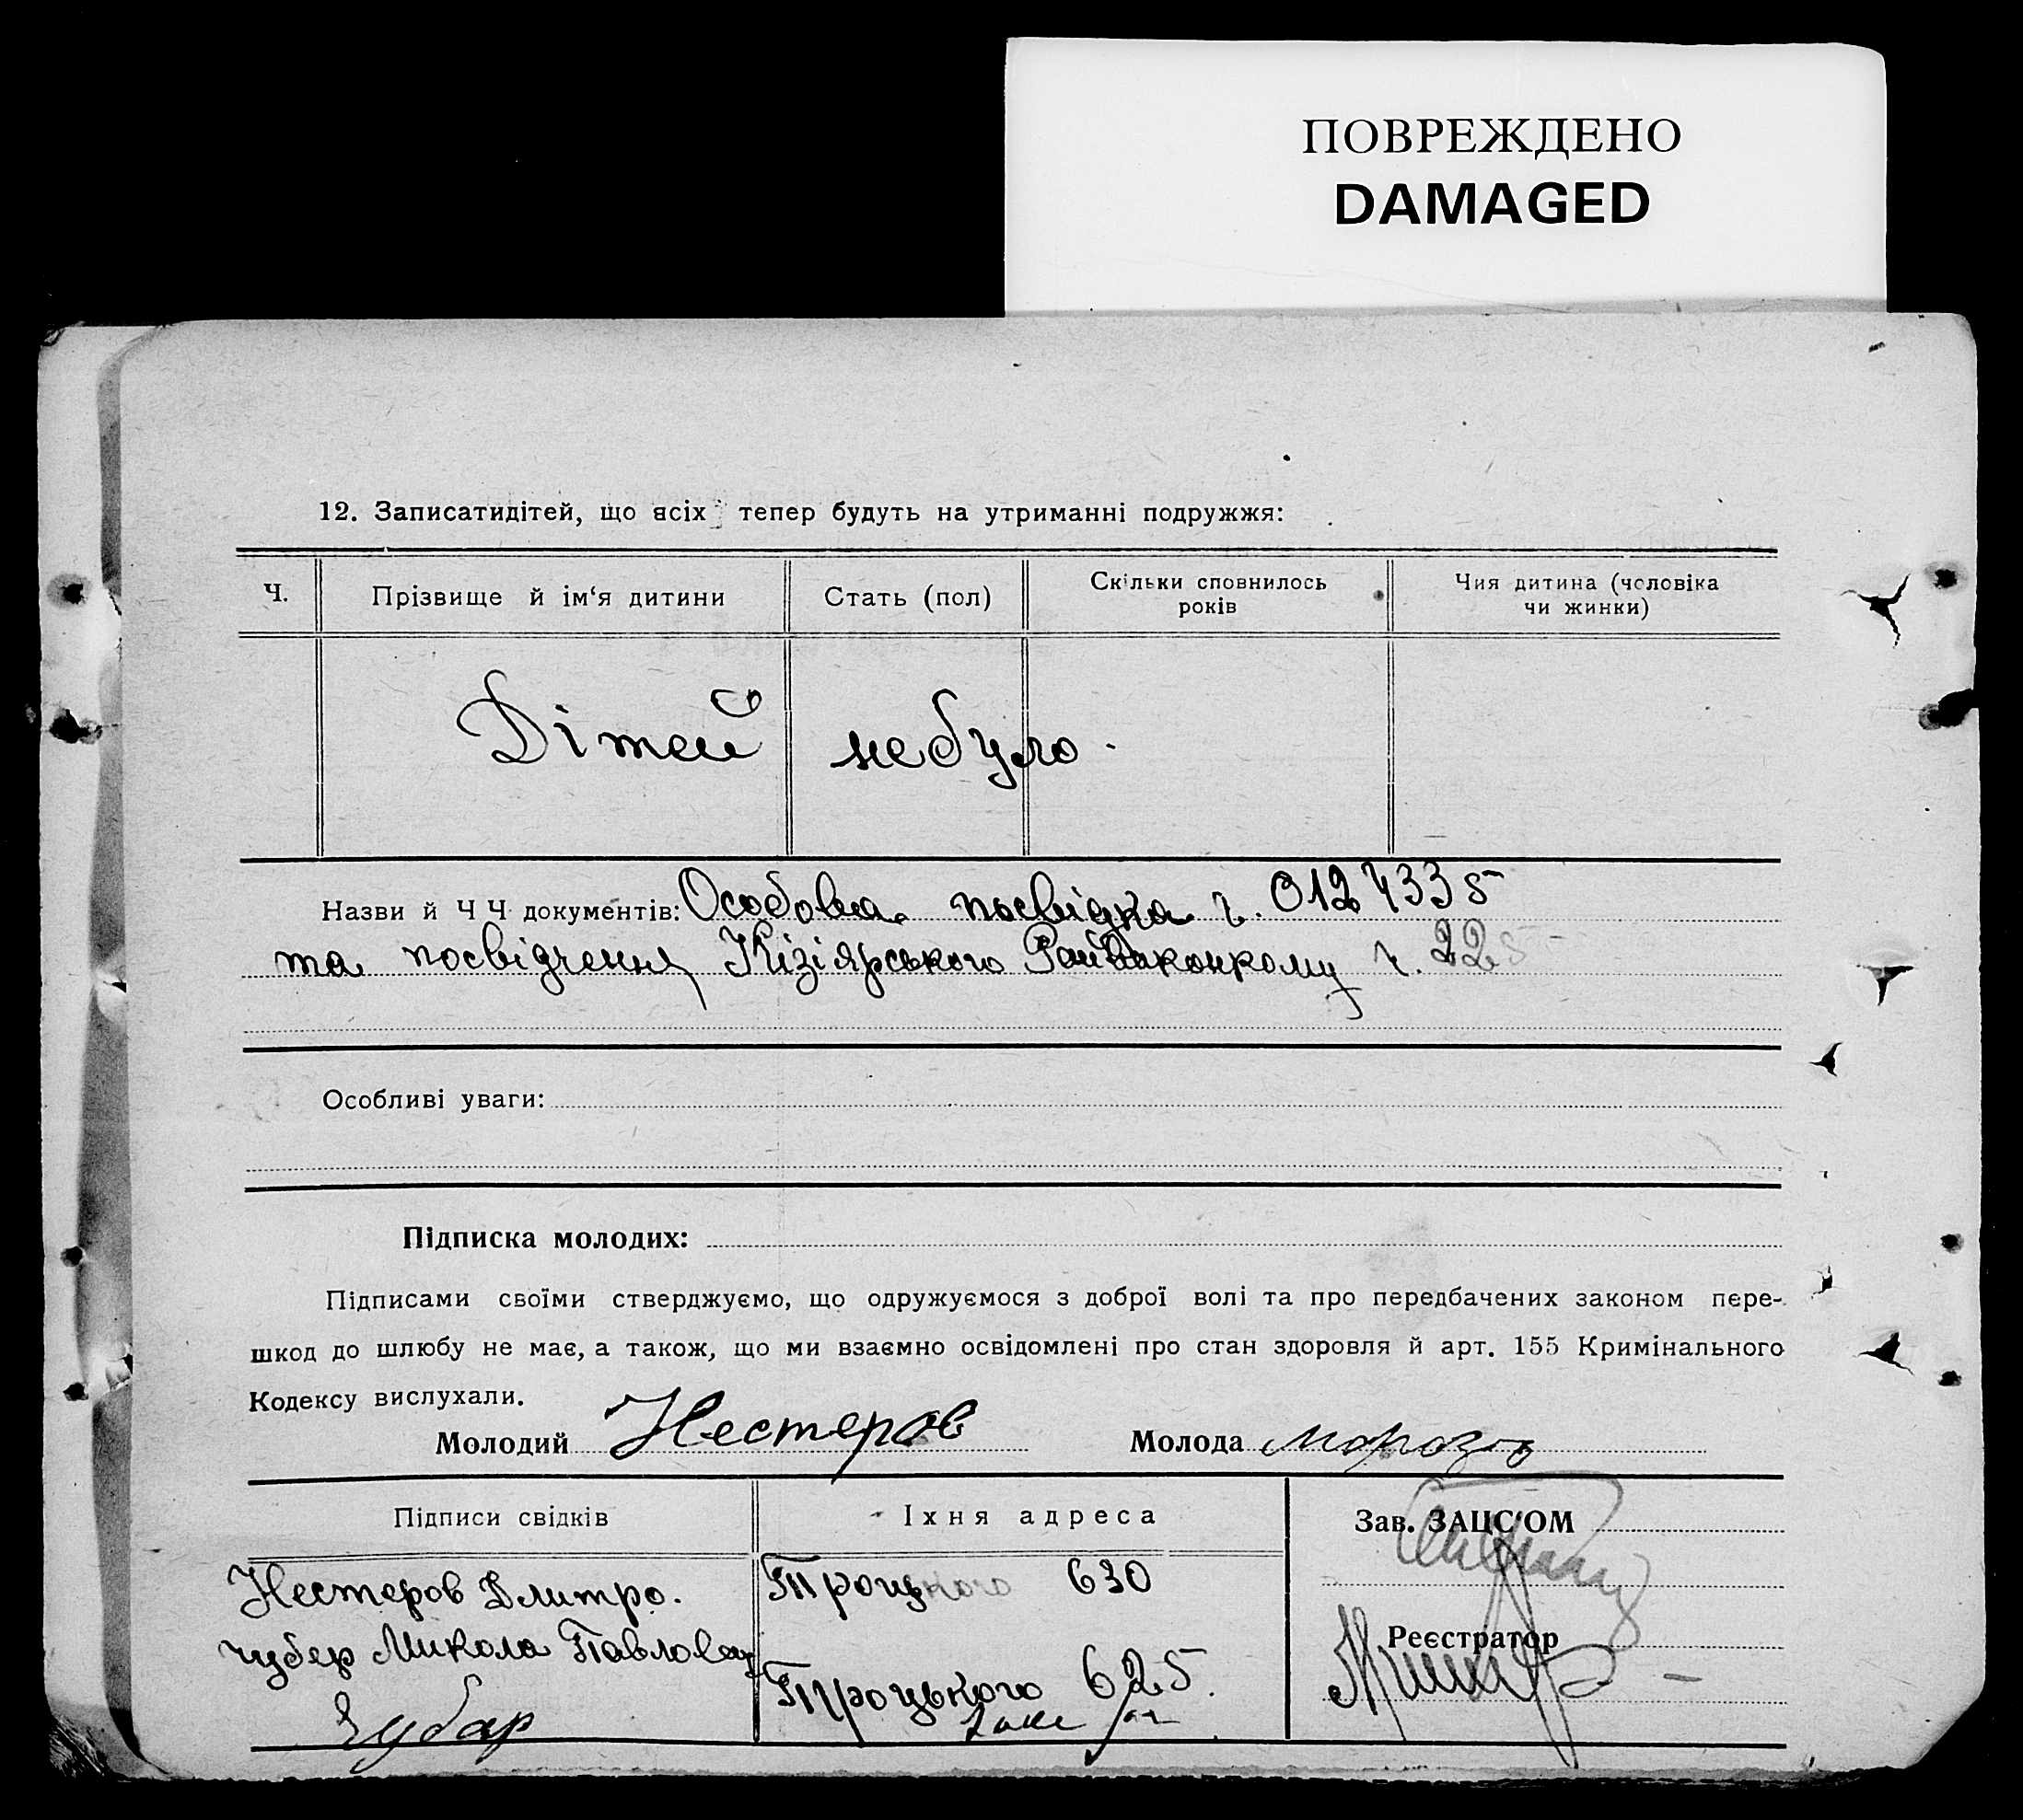 ПОВРЕЖДЕНО
DAMAGED
12. Записатидітей, що всіх тепер будуть на утриманні подружжя:
Ч. Прізвище й ім‘я дитини Стать (пол) Скільки сповнилось років Чия дитина (чоловіка чи жинки)
Дітей не було.
Назви й Ч Ч документів: Особова посвідка ч. 0124335
та посвідчення Кізіярського Райвиконкому ч. 225
Особливі уваги:
Підписка молодих:
Підписами своїми стверджуємо, що одружуємося з доброї волі та про передбачених законом пере-
шкод до шлюбу не має, а також, що ми взаємно освідомлені про стан здоровля й арт. 155 Кримінального
Кодексу вислухали.
Молодий Нестеров Молода
Підписи свідків Іхня адреса Зав. ЗАЦС‘ОМ
Нестеров Дмитро. Троцького 630
Реєстратор
чубер Микола Павлович
Троцького 625.